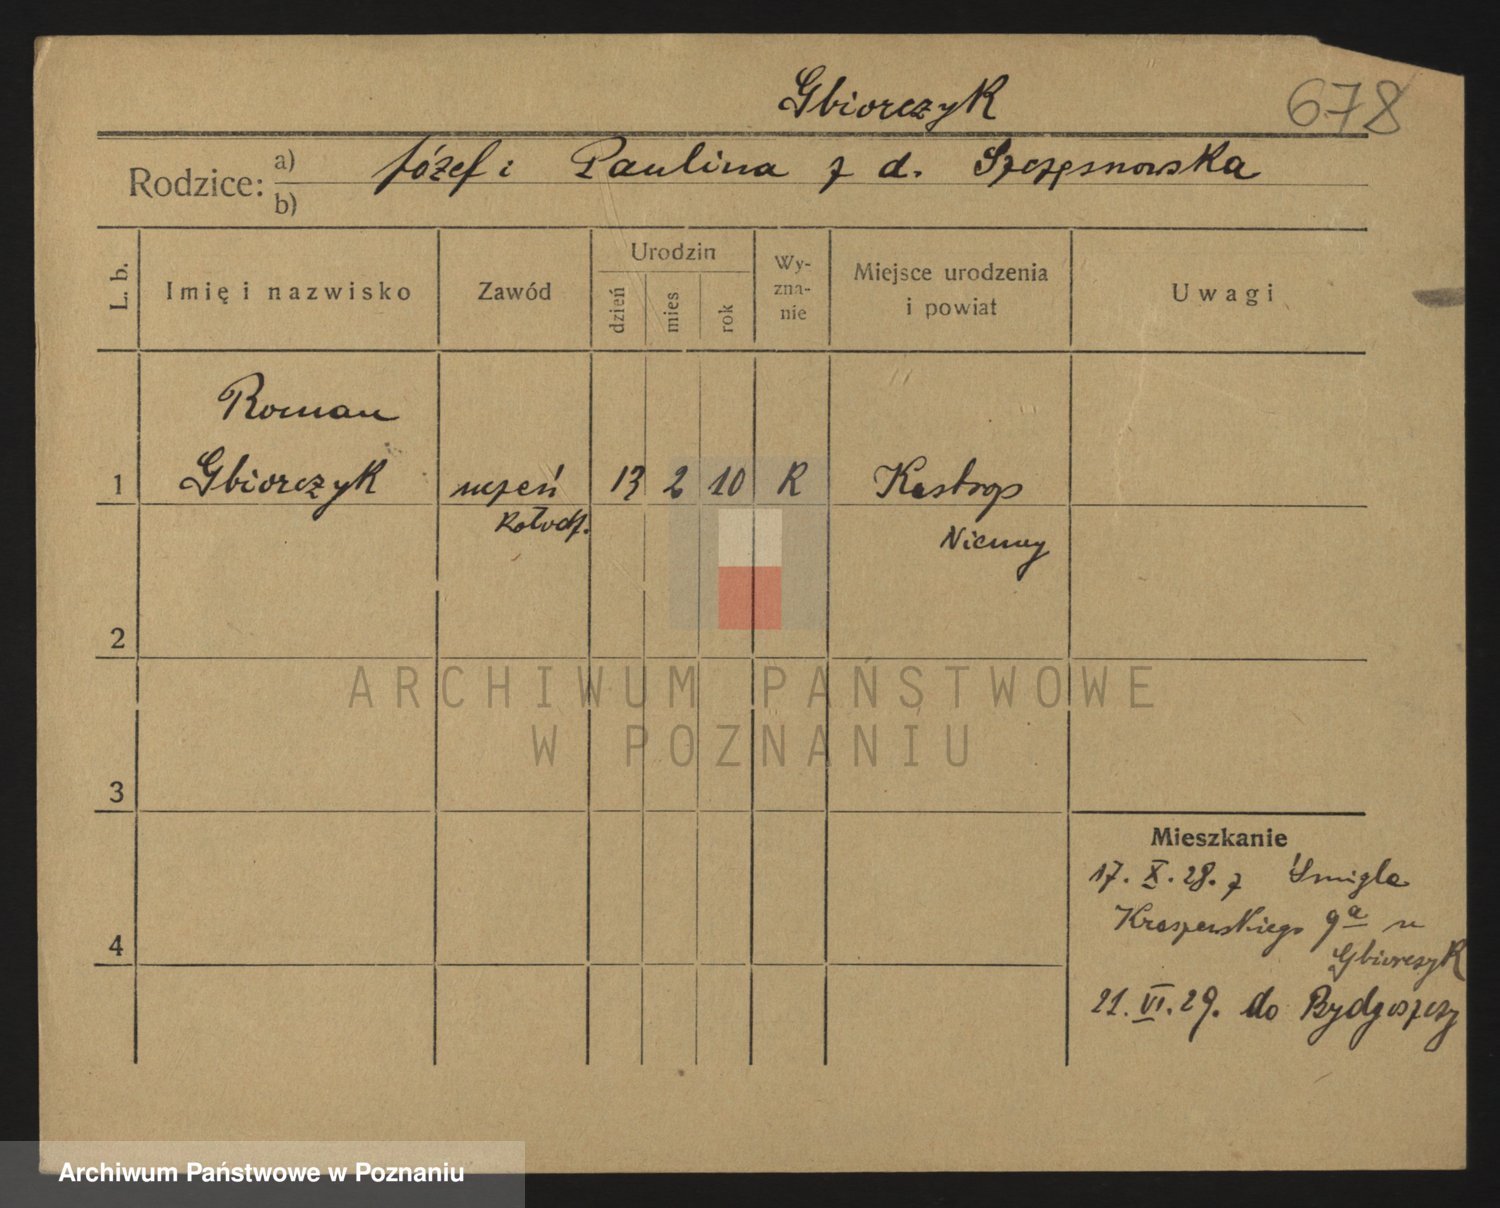 Gbiorczyk
678
Rodzice: a) Józef i Paulina z d. Szczęsnowska
b)
L. b.
Imię i nazwisko
Zawód
Urodzin
dzień
mies
rok
Wy-
zna-
nie
Miejsce urodzenia
i powiat
Uwagi
Roman
1 Gbiorczyk uczeń 13 2 10 R Kastrop
Niemcy
2
3
4
Mieszkanie
17. X. 28. z Śmigla
Kraszewskiego 9a u
Gbiorczyk
21. VI. 29. do Bydgoszczy
ARCHIWUM PAŃSTWOWE
W POZNANIU
Archiwum Państwowe w Poznaniu